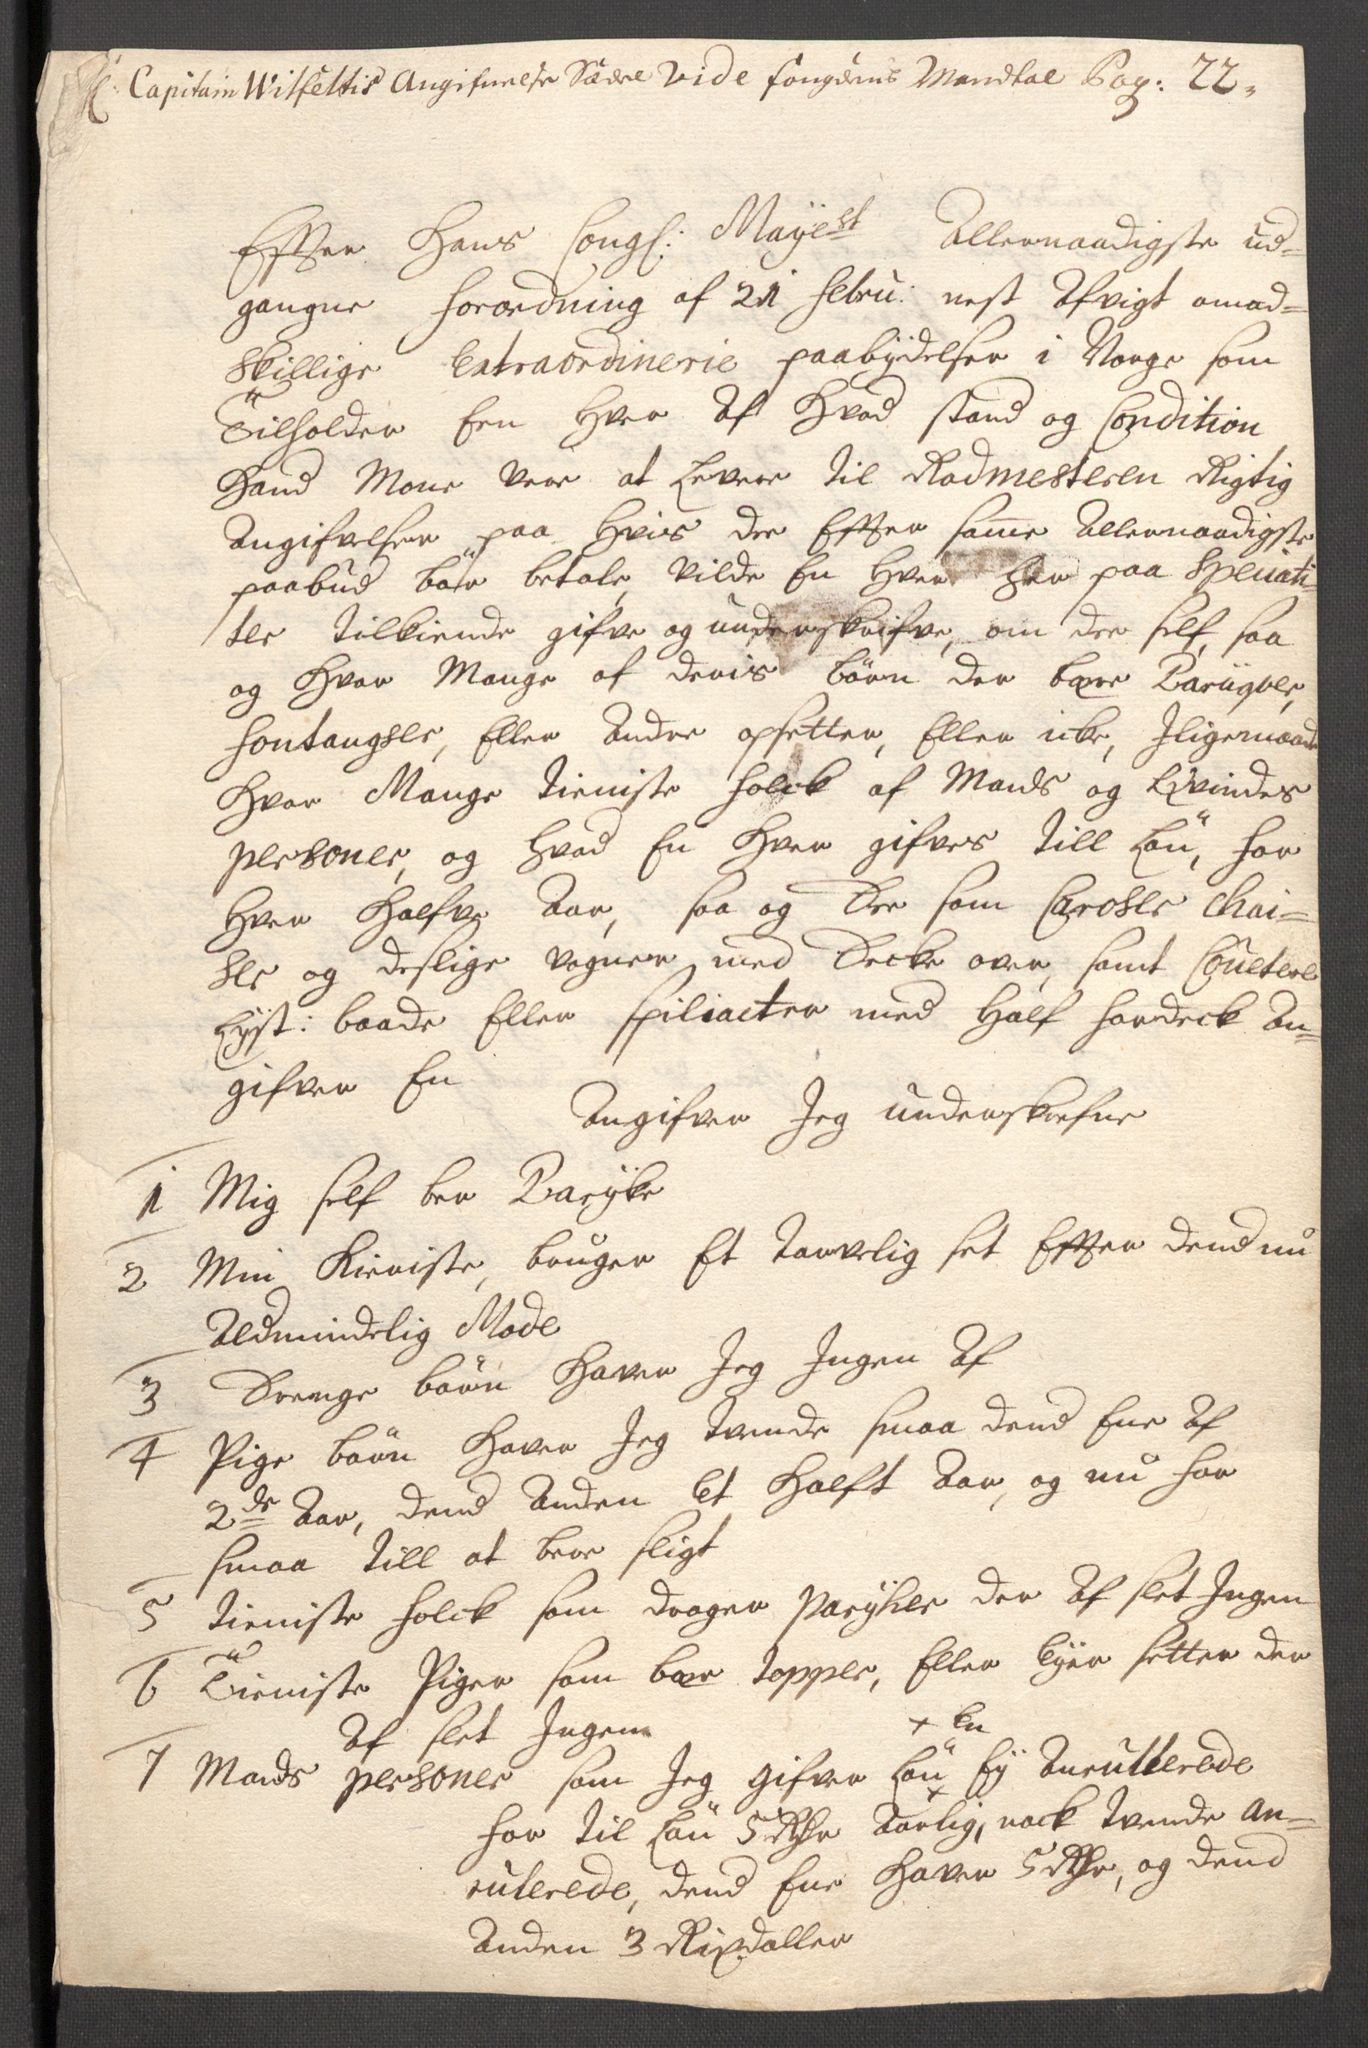 Capitain Wilfeltis Angifuelse Sædel vide fougdens Mandtal Pag: 22.
Effter Hans Congl: Mayest Allernaadigste ud-
gangne forordning af 21 febru: nest Afvigt om ad-
skillige Extraordinerie paabÿdelser i Norge som
Tilholder Een Hver Af Hvad stand og Condition
Hand Mone vere at Levere til Rodmesteren Rigtig
Angifvelser paa Hvis der Effter samme Allernaadigste
paabud bör betale, vilde En Hver her paa
tilkiende gifve og underskrifve, om der self, saa
og Hvor Mange af deris börn der bære Parüqver,
fontangser, Eller Andre opsetter, Eller icke, Iligemaade
Hvor Mange tieniste folck af Mands og Qvindes
personer, og Hvad En Hver gifves till Lön, for
Hver Halfve Aar, saa og Der som Caroser Chai-
ser og deslige vogner med Decke over, samt
Lÿst: baade Eller med Half fordeck An-
gifver En
Angifver Jeg underskrefne
1 Mig self ber Parÿke
2 Min Kieriste, bruger Et tarvelig set Effter dend nu
Aldmindelig Mode
3 Drenge börn Haver Jeg Ingen Af
4 Pige börn Haver Jeg tvende smaa dend Ene Af
2de Aar, dend Anden Et Halft Aar, og nu for
smaa till at bere sligt
5 tieniste folck som drager Parÿker der Af slet Ingen
6 Tieniste Piger som bær topper, Eller Eÿer setter der
Af slet Ingen
+ En
7 Mands personer som Jeg gifver Lön Eÿ Anrullerede
for til Lön 5 Rdr Aarlig, nock tvende An-
rulerede, dend Ene Haver 5 Rdr, og dend
Anden 3 Rixdaller